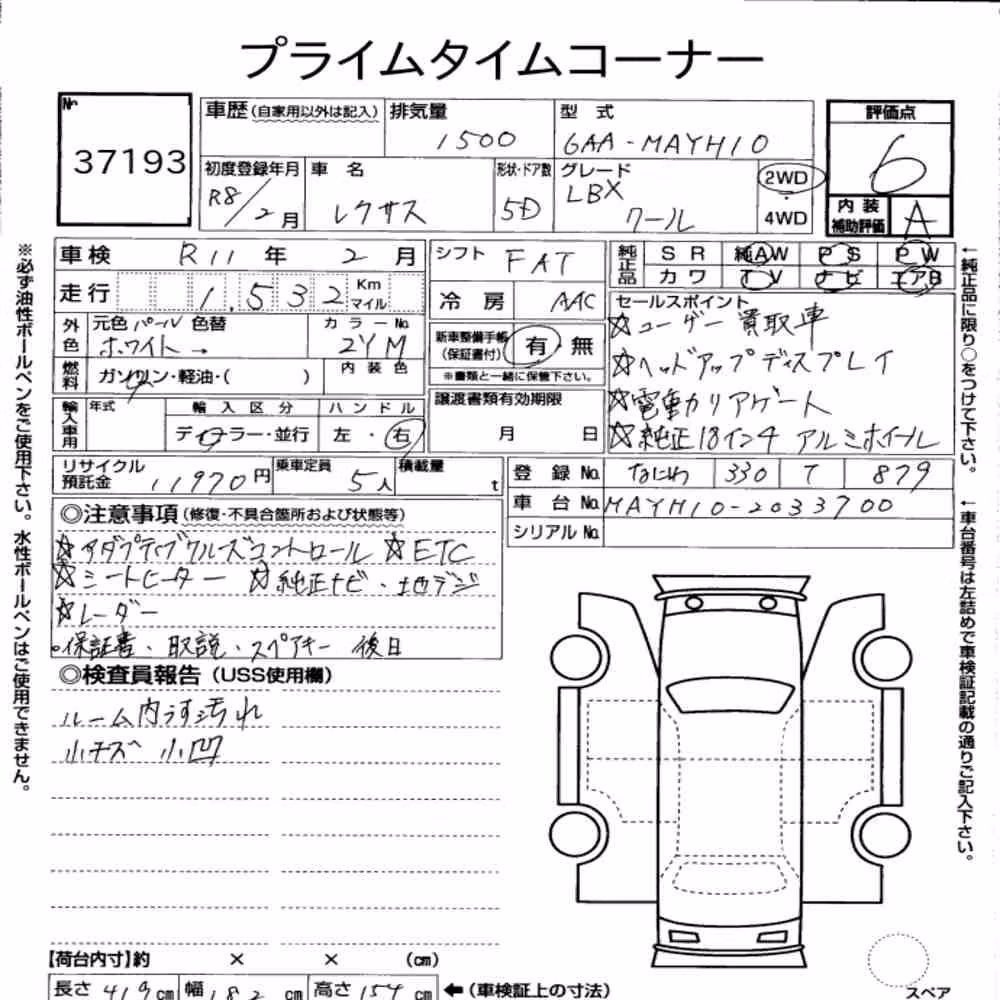 プライムタイムコーナー
No. 37193
車歴(自家用以外は記入) 排気量 1500 型式 6AA-MAYH10
評価点 6
初度登録年月 R8/2月 車名 レクサス 形状・ドア数 5D グレード LBX クール 2WD 4WD
内装補助評価 A
車検 R11年 2月 シフト FAT 純正品 SR 純AW PS PW
カワ TV ナビ エアB
走行 1,532 Km マイル 冷房 AAC
セールスポイント
外色 元色 パールホワイト 色替 → カラーNo. 2YM
新車整備手帳(保証書付) 有・無
※書類と一緒に保管下さい。
☆ユーザー買取車
☆ヘッドアップディスプレイ
☆電動リアゲート
☆純正18インチ アルミホイール
燃料 ガソリン・軽油・( ) 内装色
譲渡書類有効期限 月 日
輸入車用 年式 輸入区分 ディーラー・並行 ハンドル 左・右
リサイクル預託金 11970円 乗車定員 5人 積載量 t
登録No. なにわ 330 て 879
車台No. MAYH10-2033700
シリアルNo.
◎注意事項(修復・不具合箇所および状態等)
☆アダプティブクルーズコントロール ☆ETC
☆シートヒーター ☆純正ナビ・地デジ
☆レーダー
○保証書・取説・スペアキー 後日
◎検査員報告(USS使用欄)
ルーム内うす汚れ
小キズ 小凹
【荷台内寸】約 × × (cm)
長さ 419cm 幅 182cm 高さ 154cm ←(車検証上の寸法)
スペア
※必ず油性ボールペンをご使用下さい。水性ボールペンはご使用できません。
←純正品に限り○をつけて下さい。
←車台番号は左詰めで車検証記載の通りご記入下さい。